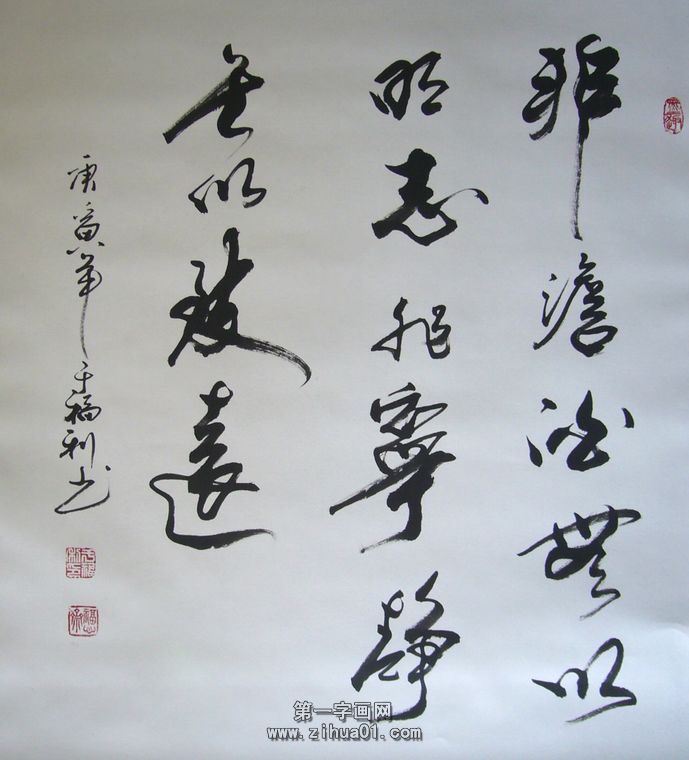 非澹泊無以
明志非寧靜
無以致遠
庚寅年于福利书
第一字画网
www.zihua01.com